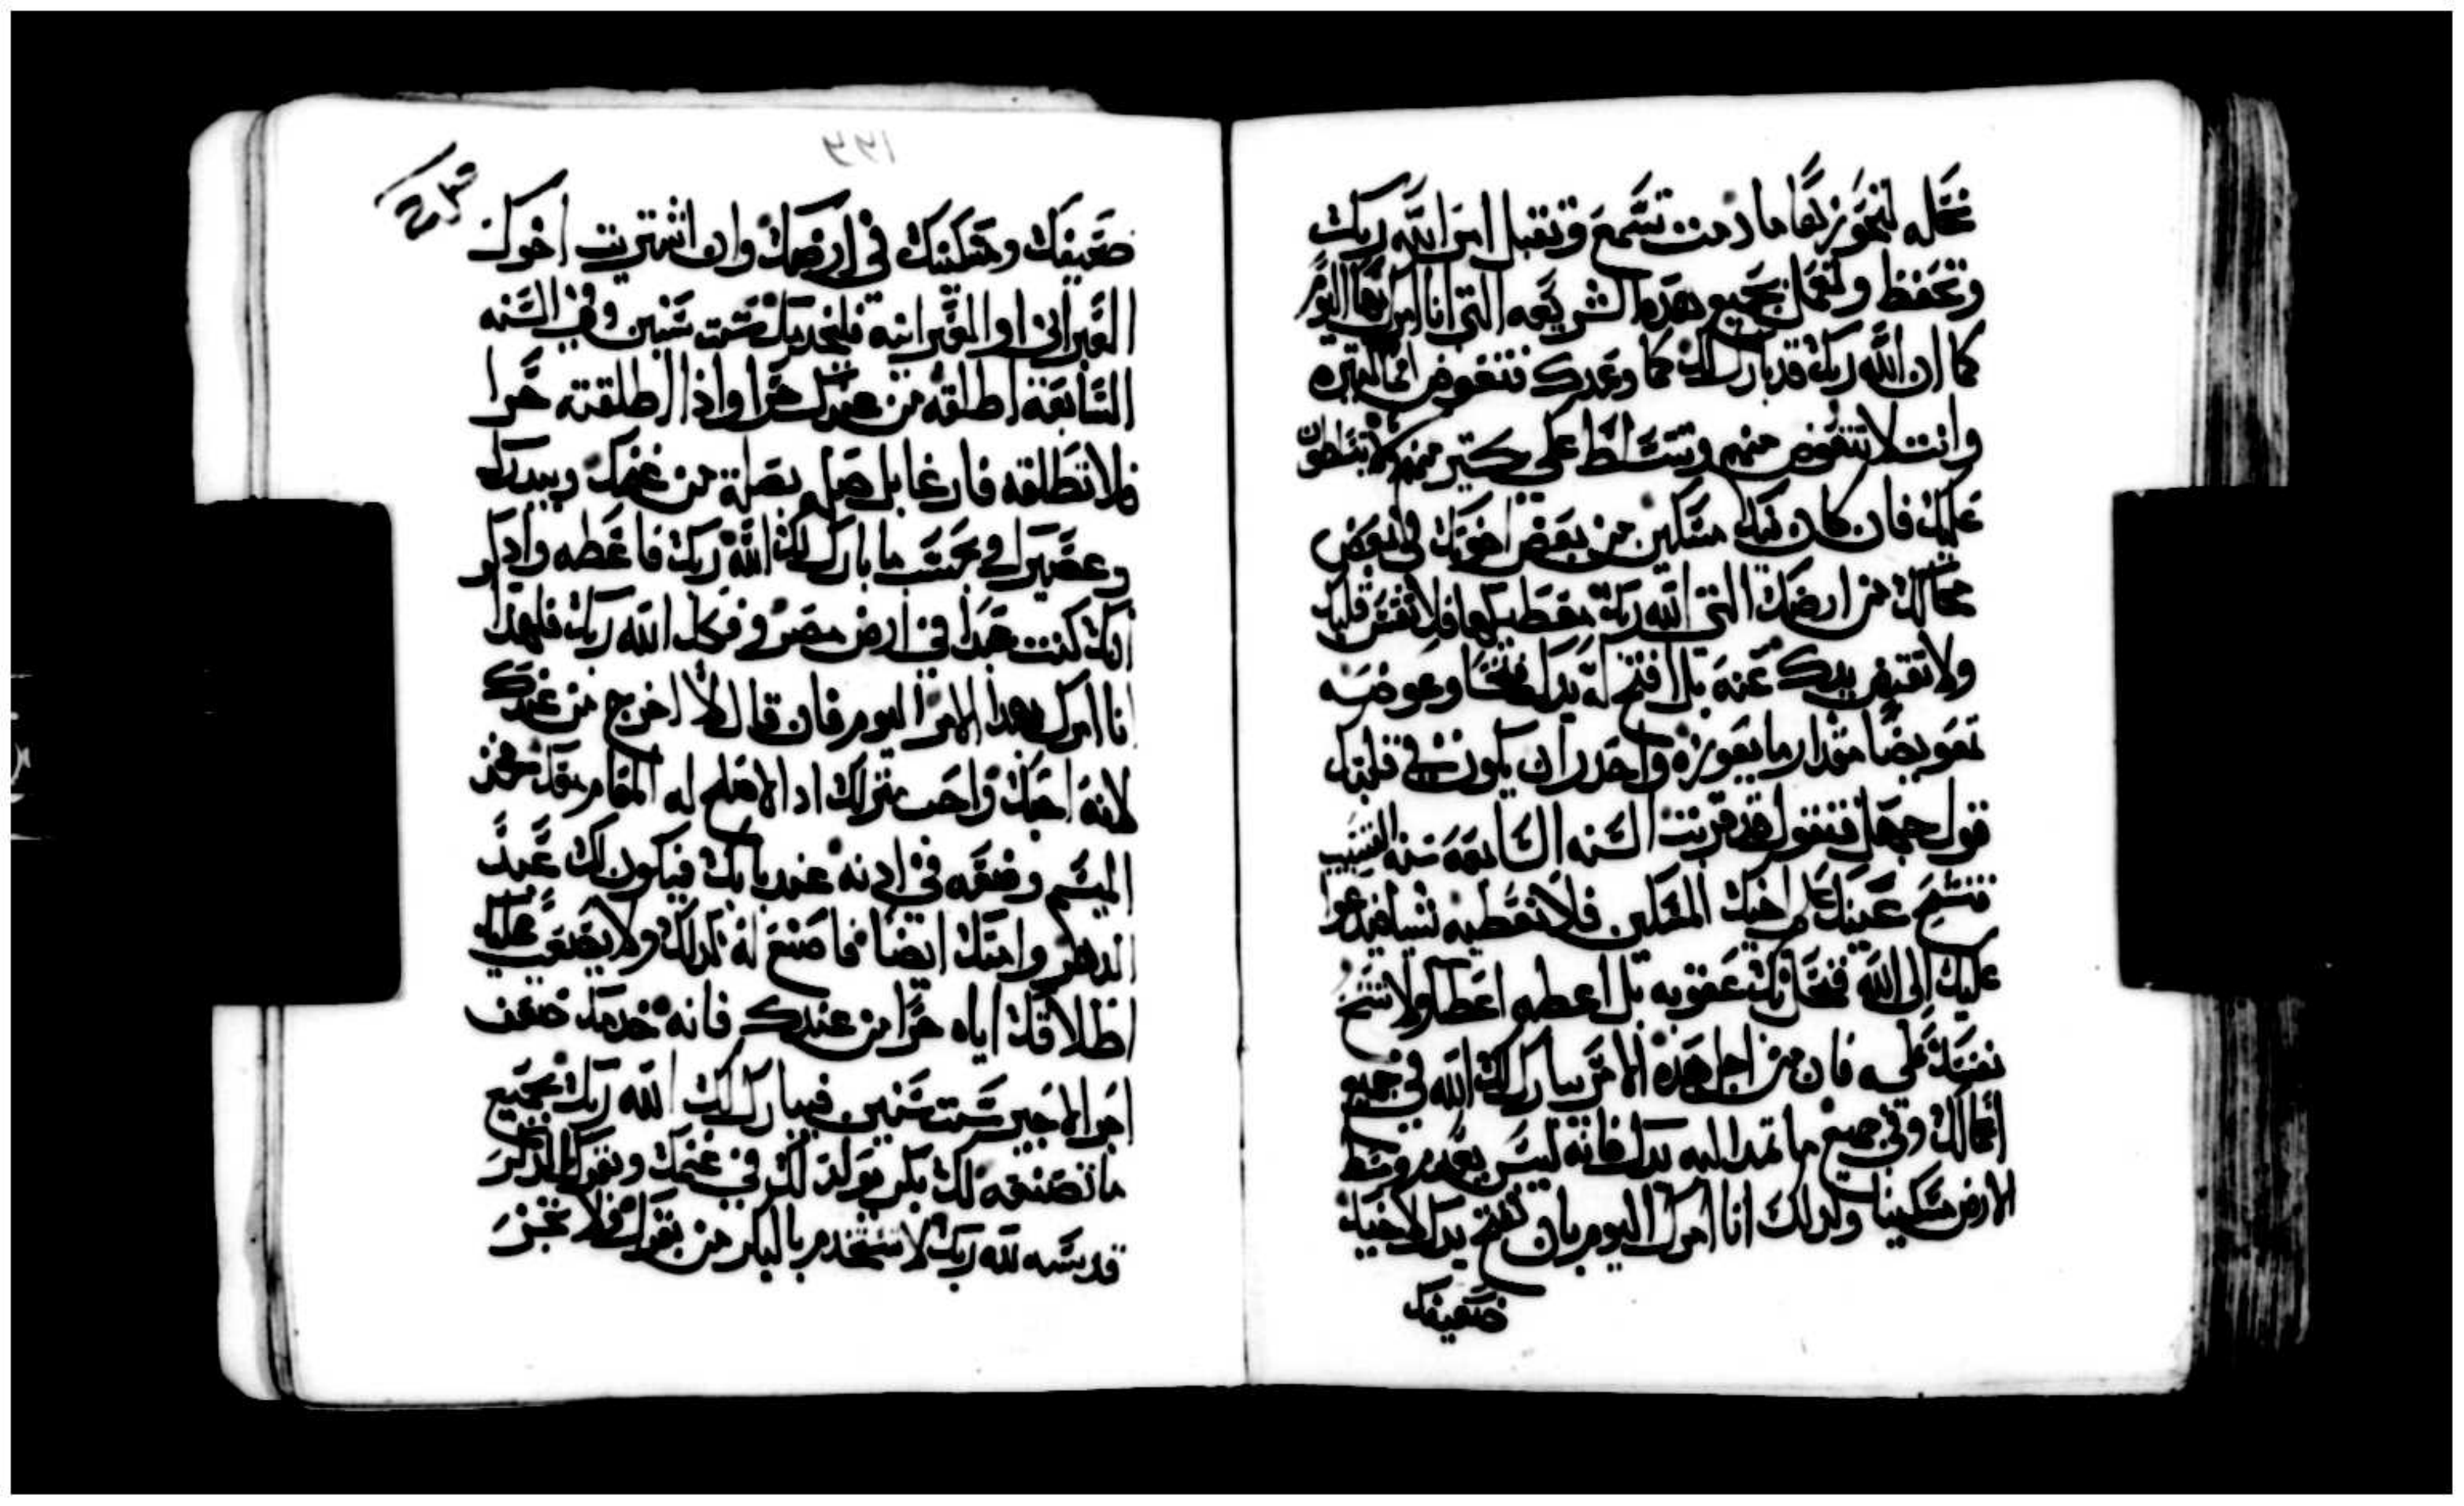 نحله لتحوزها ما دمت تسمع وتقبل امر الله ربك
وتحفظ وتعمل بجميع هذه الشريعه التي انا امرك بها اليوم
كما ان الله ربك قد بارك لك كما وعدك فتعوض امما كتيره
وانت لا تتعوض منهم وتتسلط على كتير منهم لا يتسلطون
عليك فان كان فيك مسكين من بعض اخوتك في بعض
محالك من ارضك التي الله ربك معطيكها فلا تقس قلبك
ولا تقبض يدك عنه بل افتح له يدك فتحا وعوضه
تعويضا مقدار ما يعوزه واحدر ان يكون في قلبك
قول جهل فتقول قد قربت السنه السابعه سنه التسييب
فتشح عينك على اخيك المسكين فلا تعطيه شيا فيدعوا
عليك الى الله فتحل بك عقوبه بل اعطه اعطا ولا تشح
نفسك عليه فان من اجل هذه الامر يبارك لك الله في جميع
اعمالك وفي جميع ما تمد اليه يدك فانه ليس يعدم وسط
الارض مسكينا ولدلك انا امرك اليوم بان تفتح يدك لاخيك
ضعيفك
ضعيفك ومسكينك في ارضك وان اشتريت اخوك
العبراني او العبرانيه فليخدمك ست سنين وفي السنه
السابعة اطلقه من عندك حرا واذا اطلقته حرا
فلا تطلقه فارغا بل صله بصلة من غنمك وبيدرك
وعصيرك بحسب ما بارك لك الله ربك فاعطه وادكر
انك كنت عبدا في ارض مصر وفكك الله ربك فلهدا
انا امرك بهدا الامر اليوم فان قال لا اخرج من عندك
لانه احبك واحب منزلك اد الاصلح له المقام معك فخد
الميسم وضعه في ادنه عند بابك فيكون لك عبد
الدهر وامتك ايضا فاصنع له كدلك ولا يصعب عليك
اطلاقك اياه حرا من عندك فانه خدمك ضعف
اجر الاجير ست سنين فيبارك لك الله ربك بجميع
ما تصنعه لك بكر يولد لك في غنمك وبقرك الدكر
قدسه لله ربك لا تستخدم بالبكر من بقرك فلا تجز